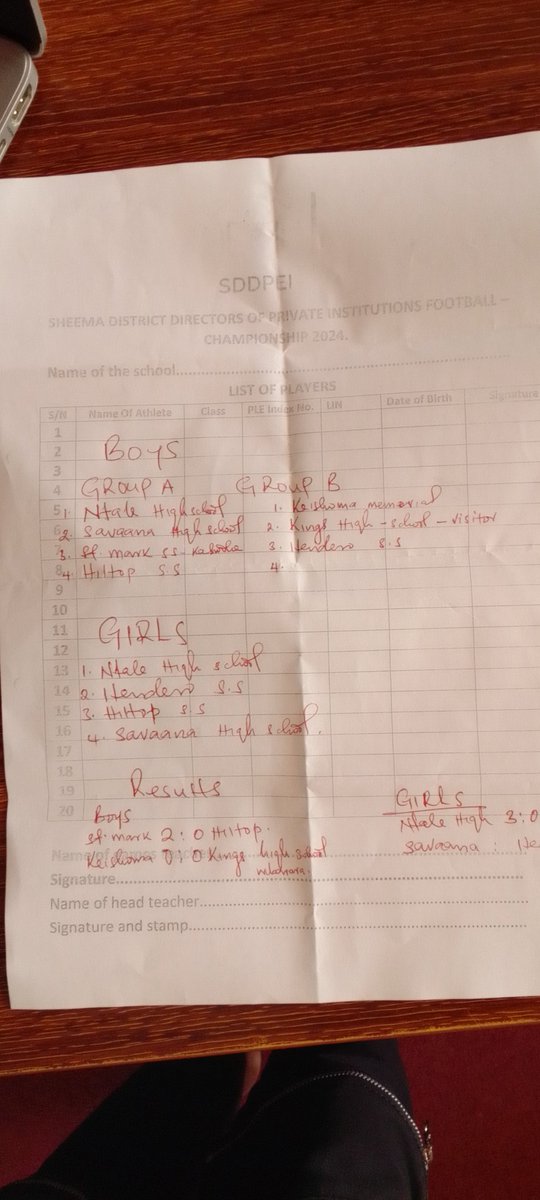 SDDPEI
SHEEMA DISTRICT DIRECTORS OF PRIVATE INSTITUTIONS FOOTBALL –
CHAMPIONSHIP 2024.
Name of the school
LIST OF PLAYERS
S/N Name Of Athlete Class PLE Index No. LIN Date of Birth Signature
1
2 BOYS
3
4 GROUP A GROUP B
5 1. Ntale High school 1. Keishoma memorial
6 2. Savaana High school 2. Kings High - school - visitor
7 3. St. mark S.S 3. Hendero S.S
8 4. Hilltop S.S 4.
9
10
11 GIRLS
12
13 1. Ntale High school
14 2. Hendero S.S
15 3. Hilltop S.S
16 4. Savaana High school.
17
18
19 Results GIRLS
20 Boys Ntale High 3:0
St. mark 2:0 Hilltop.
Keishoma 0:0 Kings high school Savaana : He
Name of
Signature
Name of head teacher
Signature and stamp